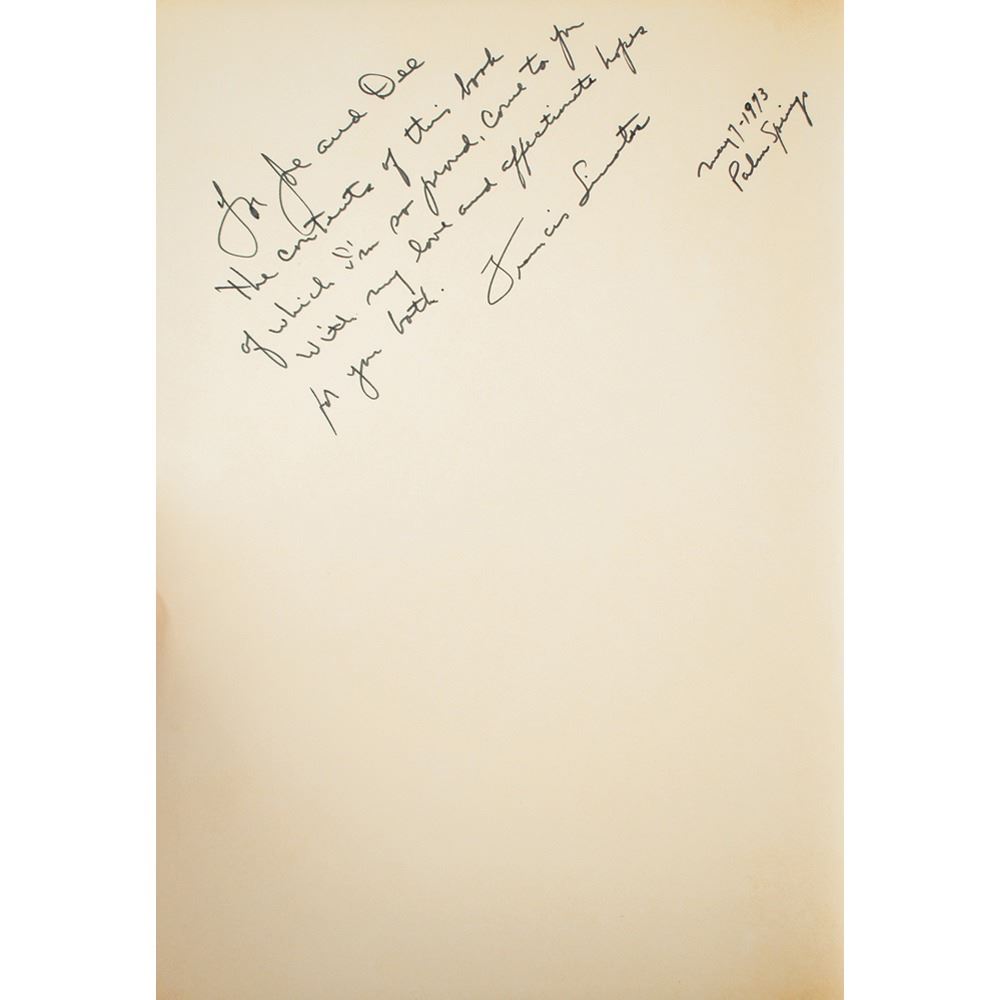 For Joe and Dee
The contents of this book
of which I'm so proud, come to you
with my love and affectionate hopes
for you both.
Francis Sinatra
May 7-1973
Palm Springs